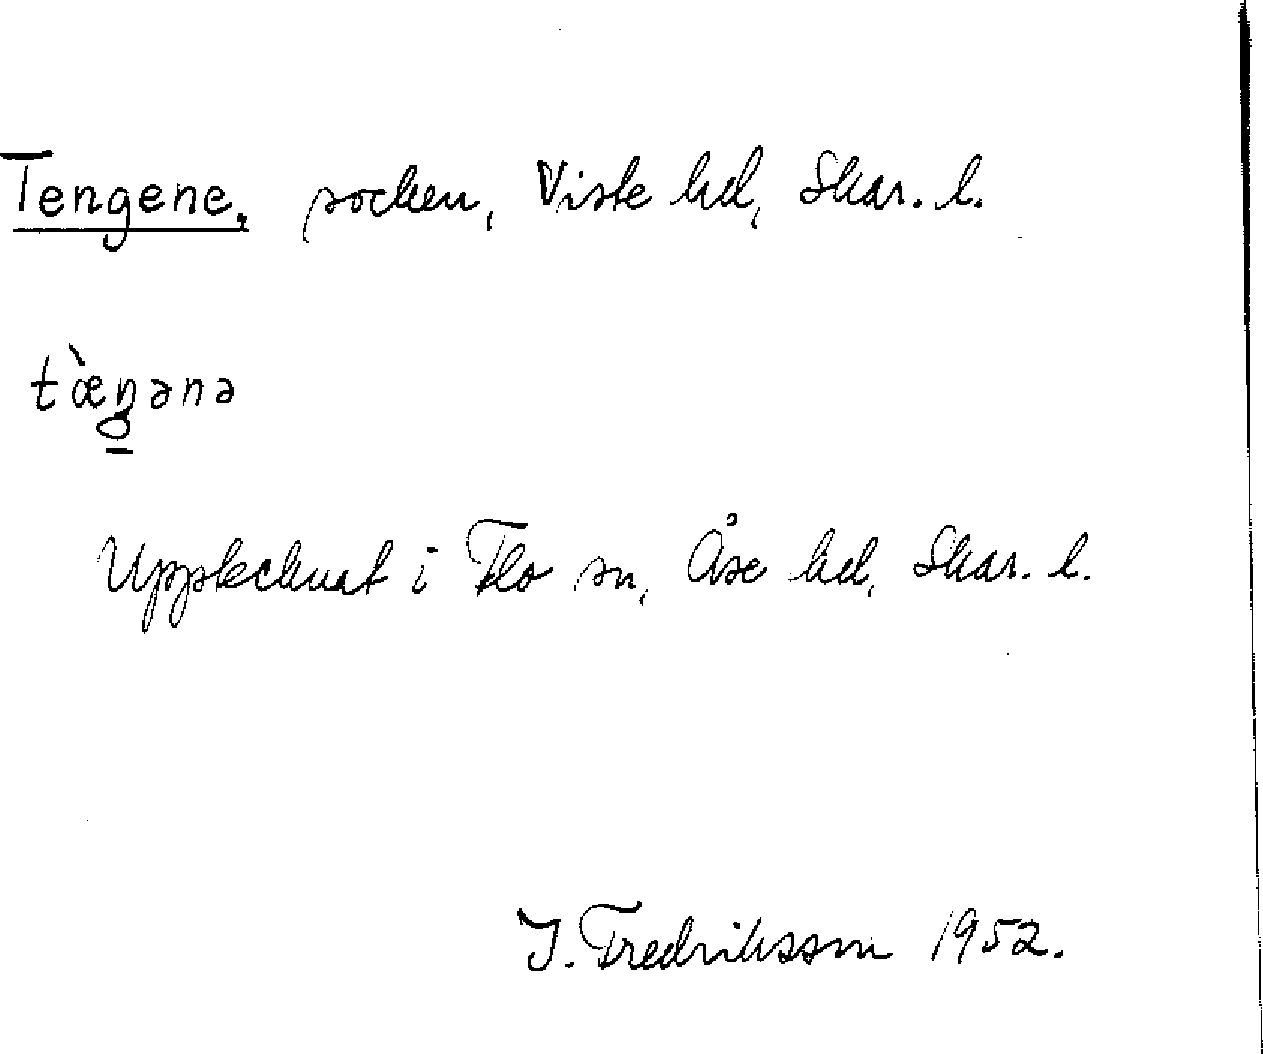 Tengene, socken, Viste hd, Skar. l.
tæ̀ŋənə
Upptecknat i Flo sn, Åse hd, Skar. l.
I. Fredriksson 1952.